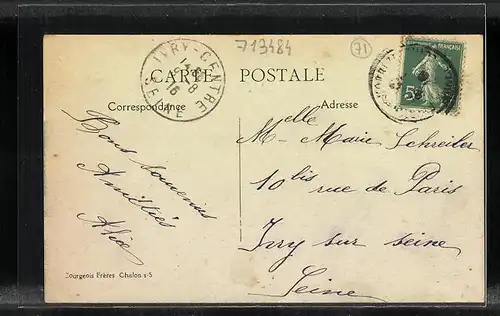 713484
71
IVRY-CENTRE
SEINE
CARTE POSTALE
5c
Correspondance
Adresse
Bons souvenirs
Amitiés
Alice
Melle Marie Schreiler
10 bis rue de Paris
Ivry sur seine
Seine
Bourgeois Frères Chalon s-S